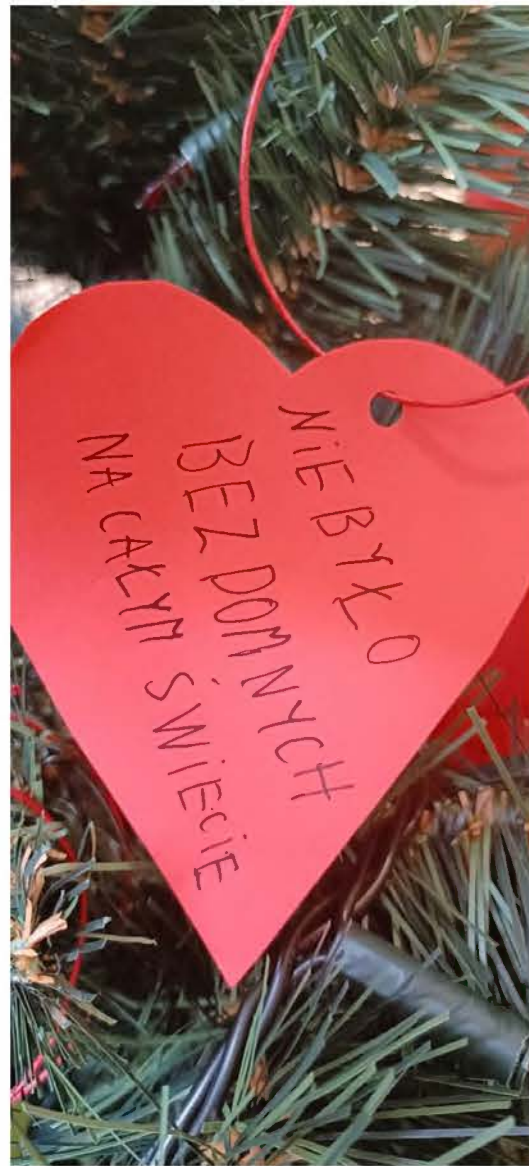 NIE BYŁO
BEZDOMNYCH
NA CAŁYM ŚWIECIE